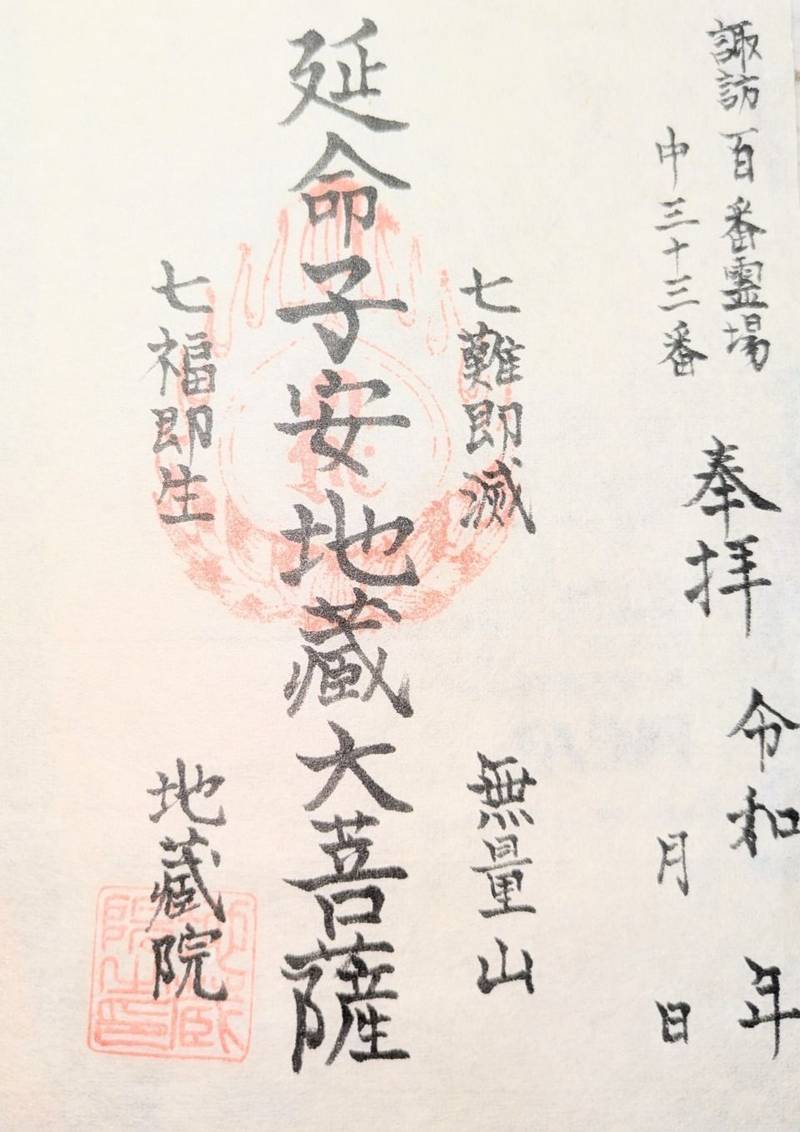 諏訪百番霊場
中三十三番
奉拝
令和 年
月 日
七難即滅
無量山
延命子安地蔵大菩薩
七福即生
地蔵院